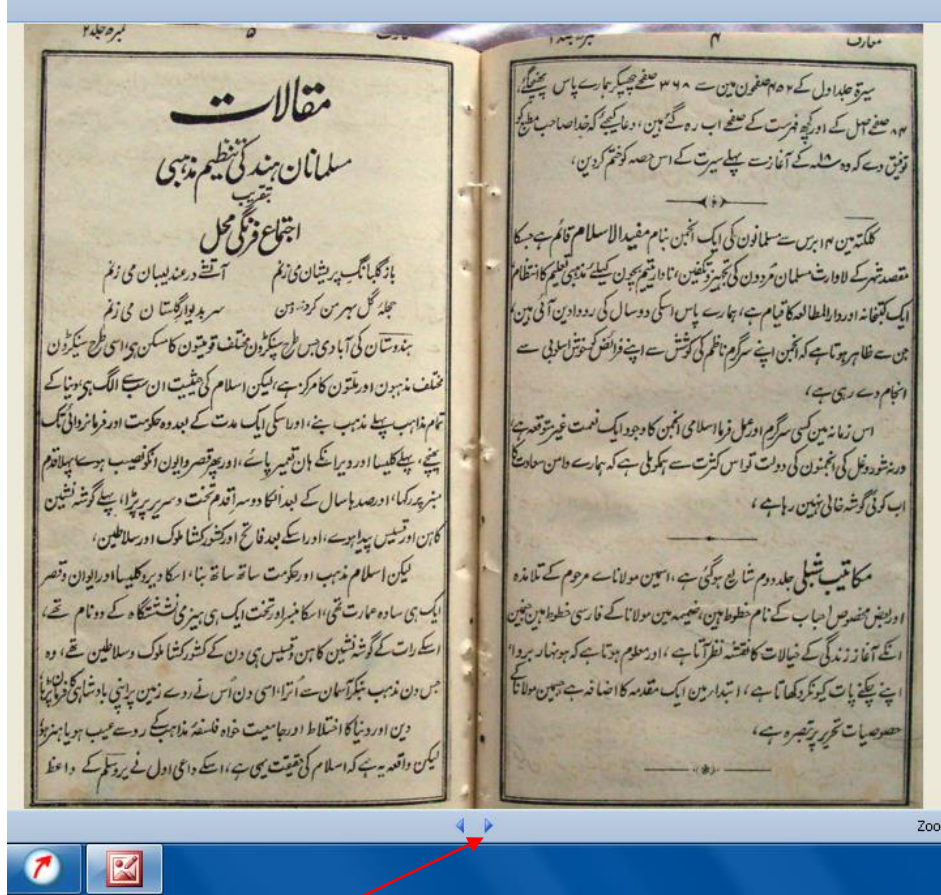 معارف ۴ نمبر ۵ جلد ۲
سیرۃ جلد اول کے ۴۵۲ صفحون مین سے ۳۶۸ صفحے چھپکر ہمارے پاس پہنچ گئے،
۸۴ صفحے اصل کے اور کچھ فہرست کے صفحے اب رہ گئے ہین، دعا کیجئے کہ خدا صاحب مطبع کو
توفیق دے کہ وہ ۱۸ء کے آغاز سے پہلے سیرت کے اس حصہ کو ختم کر دین،
کلکتہ مین ۱۴ برس سے مسلمانون کی ایک انجمن بنام مفید الاسلام قائم ہے جسکا
مقصد شہر کے لاوارث مسلمان مُردون کی تجہیز و تکفین، نادار یتیم بچون کیلئے مذہبی تعلیم کا انتظام
ایک کتبخانہ اور دار المطالعہ کا قیام ہے، ہمارے پاس اسکی دو سال کی رودادین آئی ہین،
جن سے ظاہر ہوتا ہے کہ انجمن اپنے سرگرم ناظم کی کوشش سے اپنے فرائض کو خوش اسلوبی سے
انجام دے رہی ہے،
اس زمانہ مین کسی سرگرم اور عمل فرما اسلامی انجمن کا وجود ایک نعمت غیر متوقعہ ہے،
ورنہ شور و غل کی انجمنون کی دولت تو اس کثرت سے ہمکو ملی ہے کہ ہمارے دامن سعادت کا
اب کوئی گوشہ خالی نہین رہا ہے،
مکاتیب شبلی جلد دوم شایع ہوگئی ہے، اسمین مولانا ے مرحوم کے تلامذہ
اور بعض مخصوص احباب کے نام خطوط ہین، ضمیمہ مین مولانا کے فارسی خطوط ہین جنمین
انکے آغاز زندگی کے خیالات کا نقشہ نظر آتا ہے، اور معلوم ہوتا ہے کہ ہونہار بروا
اپنے چکنے پات کیونکر دکھاتا ہے، ابتدا مین ایک مقدمہ کا اضافہ ہے جسمین مولانا کی
خصوصیات تحریر پر تبصرہ ہے،
معارف ۵ نمبر ۵ جلد ۲
مقالات
مسلمانان ہند کی تنظیم مذہبی
بتقریب
اجتماع فرنگی محل
باز گلبانگ پریشان می زنم آتشے در عندلیبان می زنم
جملۂ گل سر من کردند سر بدیوار گلستان می زنم
ہندوستان کی آبادی جس طرح سیکڑون مختلف قومیتون کا مسکن ہی، اسی طرح سیکڑون
مختلف مذہبون اور ملّتون کا مرکز ہے، لیکن اسلام کی حیثیت ان سب سے الگ ہی، دنیا کے
تمام مذاہب پہلے مذہب بنے، اور اسکی ایک مدت کے بعد وہ حکومت اور فرمانروائی تک
پہنچے، پہلے کلیسا اور ویرانکے ہان تعمیر پائے، اور پھر قصر و ایوان انکو نصیب ہوے، پہلا قدم
منبر پر رکھا، اور صدہا سال کے بعد انکا دوسرا قدم تخت و سریر پر پڑا، پہلے گوشہ نشین
کاہن اور قسیس پیدا ہوے، اور اسکے بعد فاتح اور کشور کشا ملوک اور سلاطین،
لیکن اسلام مذہب اور حکومت ساتھ ساتھ بنا، اسکا دیر و کلیسا اور ایوان و قصر
ایک ہی سادہ عمارت تھی، اسکا منبر اور تخت ایک ہی ہیزمی نشستگاہ کے دو نام تھے،
اسکے رات کے گوشہ نشین کاہن و قسیس ہی دن کے کشور کشا ملوک و سلاطین تھے، وہ
جس دن مذہب بنکر آسمان سے اُترا، اسی دن اُس نے روے زمین پر اپنی بادشاہی کا فرمان پڑھا
دین اور دنیا کا اختلاط اور جامعیت خواہ فلسفۂ مذاہب کے روسے عیب ہو یا ہنر ہو
لیکن واقعہ یہ ہے کہ اسلام کی حقیقت یہی ہے، اسکے داعی اول نے یروسلم کے واعظ
Zoo